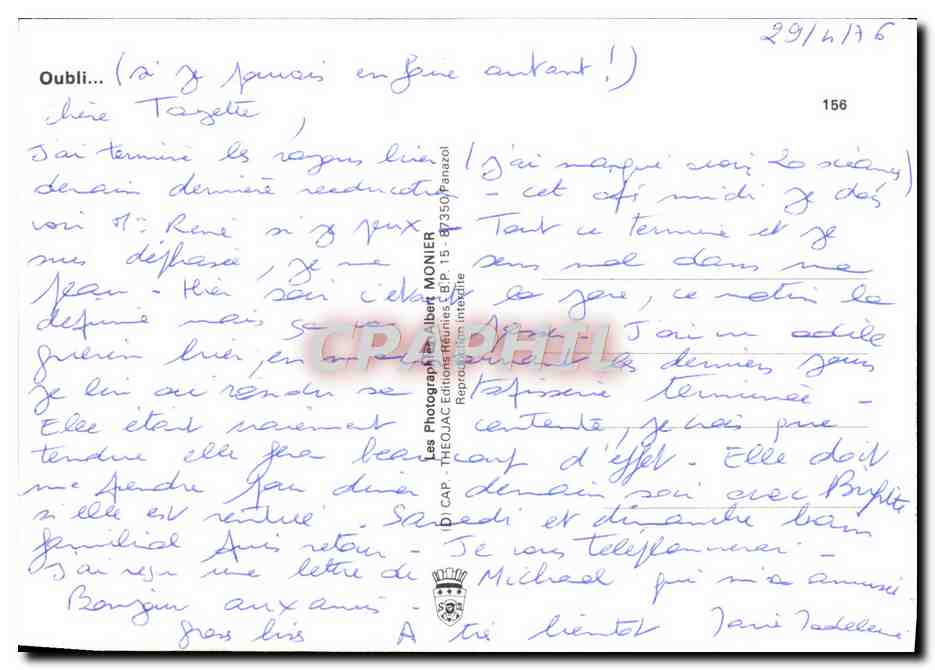 29/4/76
Oubli... (si je pouvais en faire autant!)
156
chère Tazette,
J'ai terminé les rayons hier (j'ai manqué 20 séances)
demain dernière reeducation - cet après midi je dois
voir Mr René si je peux - Tout ce termine et je
suis déphasée, je me sens mal dans ma
peau - Hier soir c'était la joie, ce matin la
déprime mais ça J'ai vu adèle
guerin hier, les derniers jours
je lui ai rendu sa tapisserie terminée -
Elle était vraiment contente, je crois que
tendue elle fera beaucoup d'effet. Elle doit
me prendre pour diner demain soir avec Brigitte
si elle est rentrée. Samedi et dimanche
familial puis retour - Je vous téléphonerai -
J'ai reçu une lettre de Michael qui m'a amusée.
Bonjour aux amis -
gros bises A très bientôt Marie Madeleine
Les Photographies Albert MONIER
(D) CAP - THEOJAC Editions Réunies - B.P. 15 - 87350 Panazol
Reproduction interdite
CPAPHIL